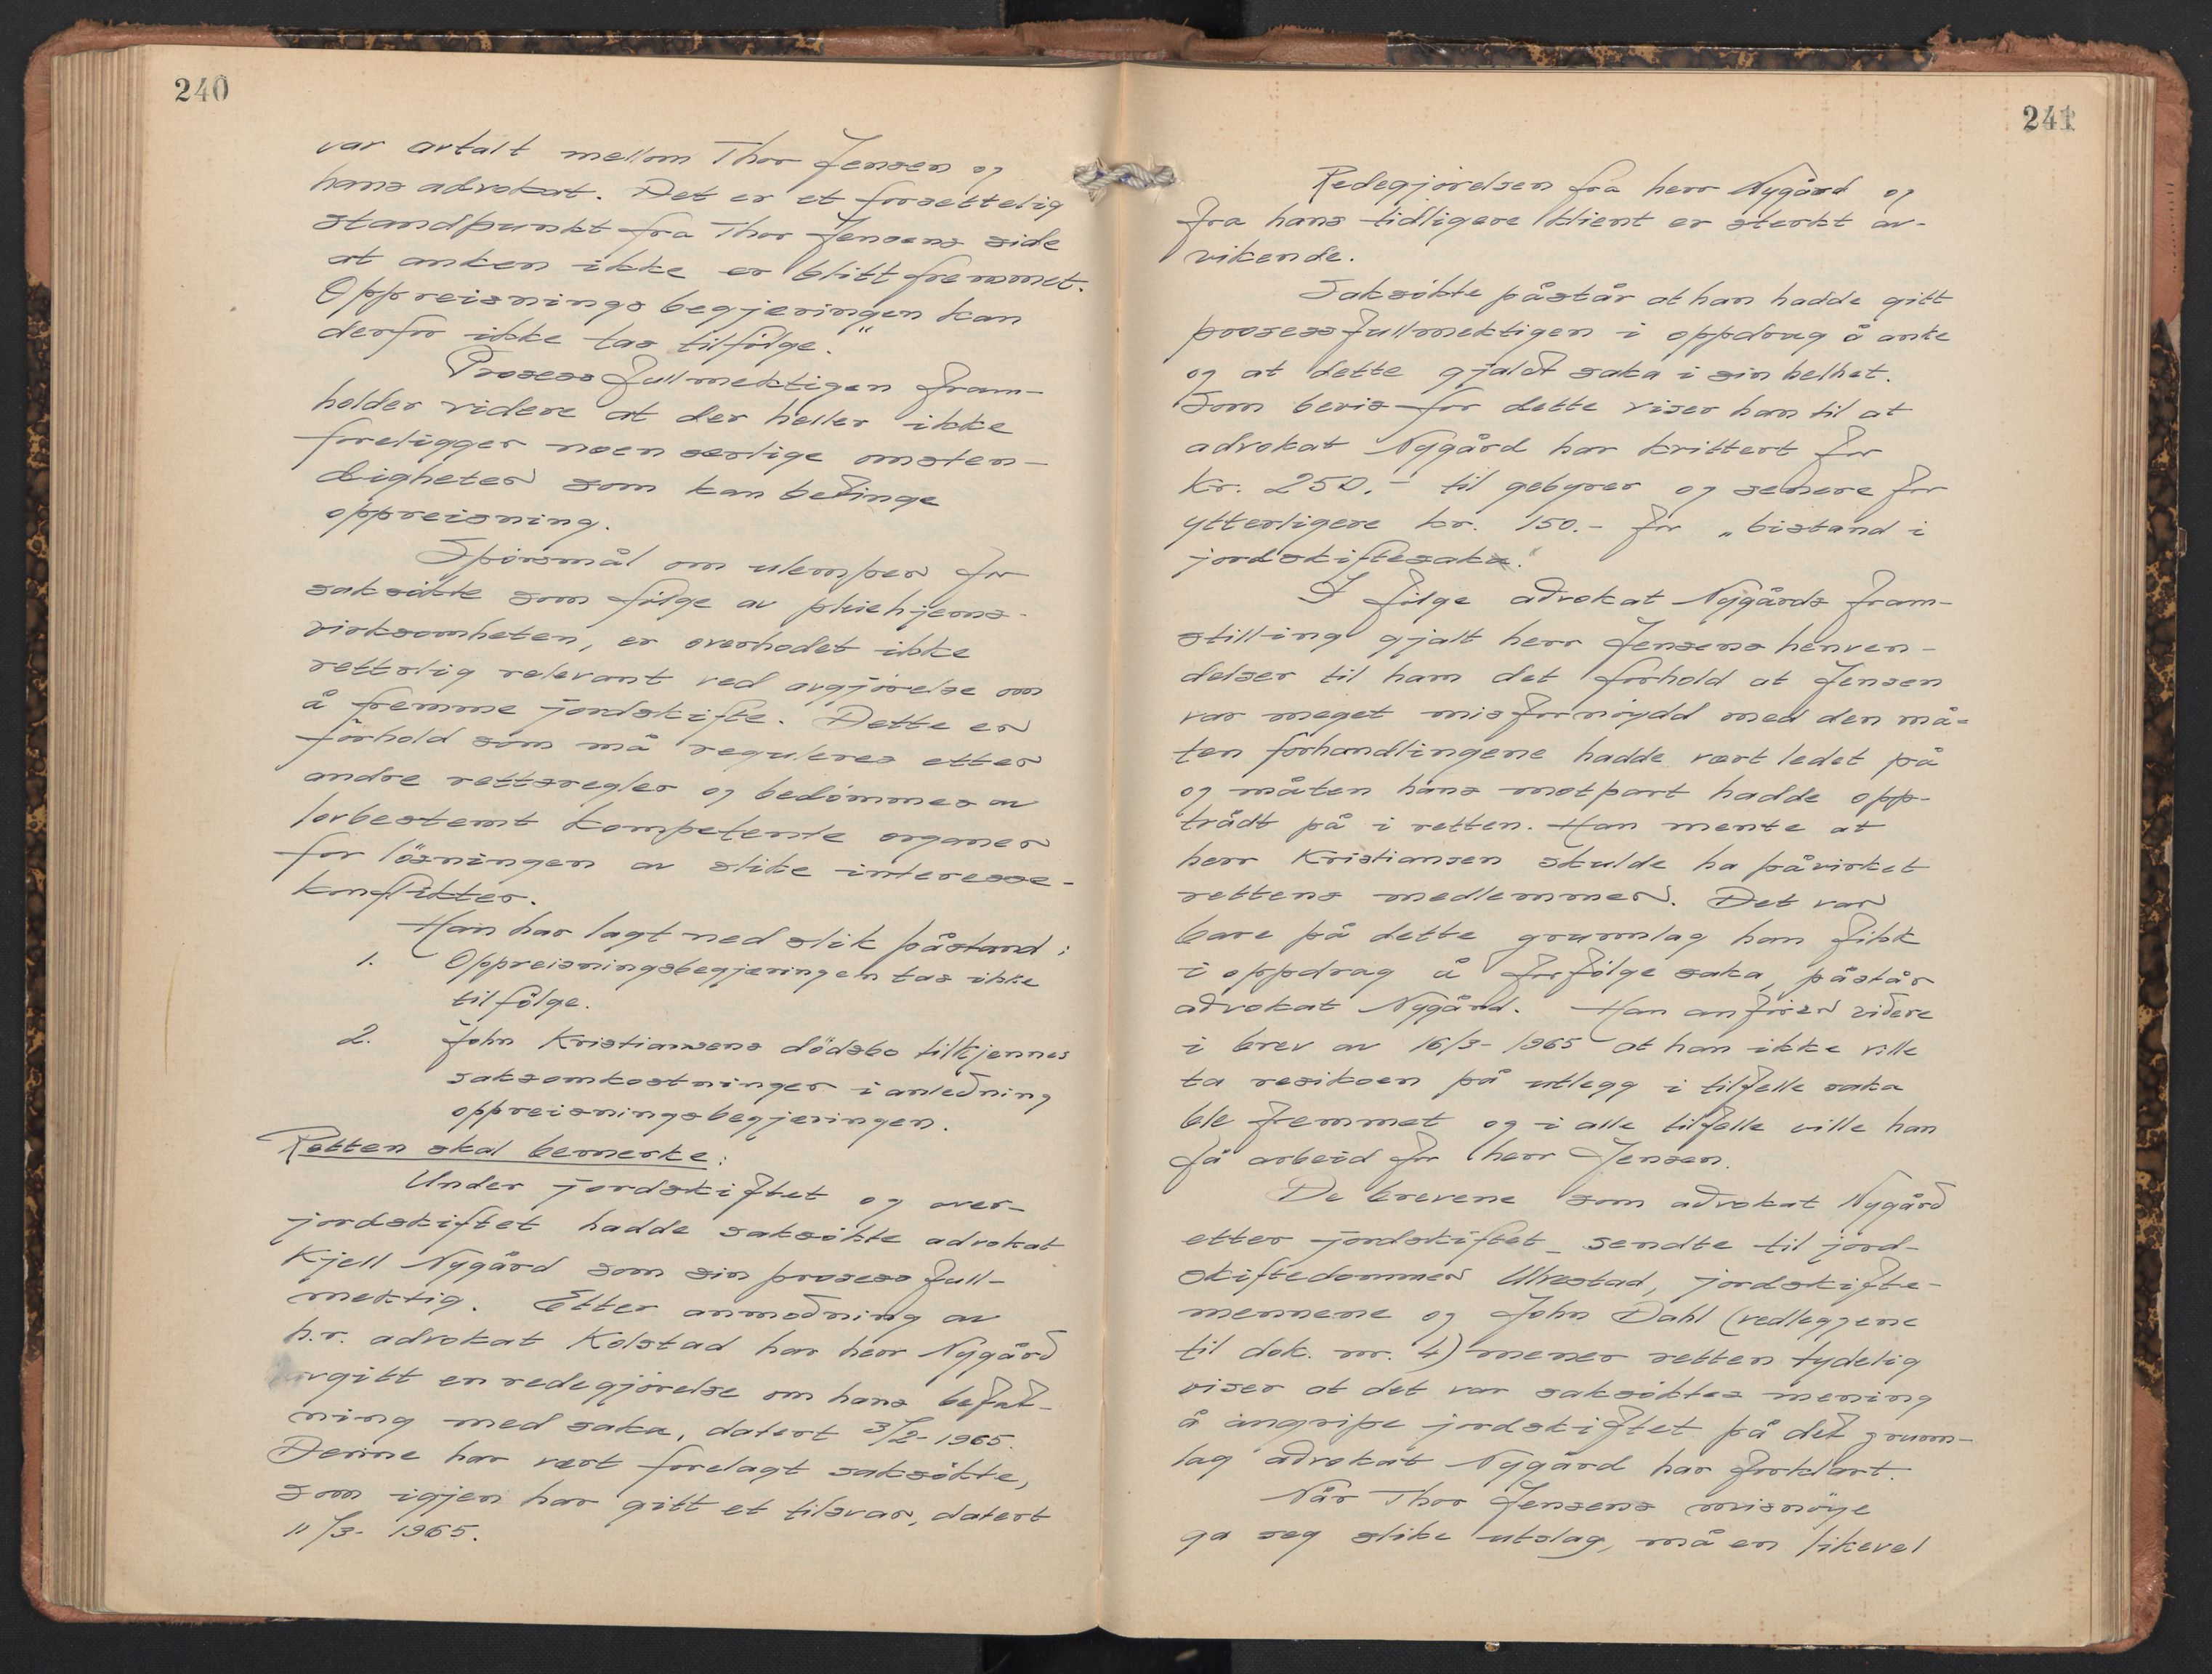 240
var avtalt mellom Thor Jensen og
hans advokat. Det er et forsettelig
standpunkt fra Thor Jensens side
at anken ikke er blitt fremmet.
Oppreisningsbegjæringen kan
derfor ikke tas tilfølge."
Prosessfullmektigen fram-
holder videre at der heller ikke
foreligger noen særlige omsten-
digheter som kan betinge
oppreisning.
Spørsmål om ulemper for
saksøkte som følge av pleiehjems-
virksomheten, er overhodet ikke
rettslig relevant ved avgjørelse om
å fremme jordskifte. Dette er
forhold som må reguleres etter
andre rettsregler og bedømmes av
lovbestemt kompetente organer
for løsningen av slike interesse-
konflikter.
Han har lagt ned slik påstand:
1. Oppreisningsbegjæringen tas ikke
tilfølge.
2. John Kristiansens dødsbo tilkjennes
saksomkostninger i anledning
oppreisningsbegjæringen.
Retten skal bemerke:
Under jordskiftet og over-
jordskiftet hadde saksøkte advokat
Kjell Nygård som sin prosessfull-
mektig. Etter anmodning av
h.r. advokat Kolstad har herr Nygård
avgitt en redegjørelse om hans befat-
ning med saka, datert 3/2-1965.
Denne har vært forelagt saksøkte,
som igjen har gitt et tilsvar, datert
11/3-1965.
241
Redegjørelsen fra herr Nygård og
fra hans tidligere klient er sterkt av-
vikende.
Saksøkte påstår at han hadde gitt
prosessfullmektigen i oppdrag å anke
og at dette gjaldt saka i sin helhet.
Som bevis for dette viser han til at
advokat Nygård har kvittert for
kr. 250.- til gebyrer og senere for
ytterligere kr. 150.- for „bistand i
jordskiftesaka."
I følge advokat Nygårds fram-
stilling gjalt herr Jensens henven-
delser til ham det forhold at Jensen
var meget misfornøydd med den må-
ten forhandlingene hadde vært ledet på
og måten hans motpart hadde opp-
trådt på i retten. Han mente at
herr Kristiansen skulde ha påvirket
rettens medlemmer. Det var
bare på dette grunnlag han fikk
i oppdrag å forfølge saka, påstår
advokat Nygård. Han anfører videre
i brev av 16/3-1965 at han ikke ville
ta resikoen på utlegg i tilfelle saka
ble fremmet og i alle tilfelle ville han
få arbeid for herr Jensen.
De brevene som advokat Nygård
etter jordskiftet sendte til jord-
skiftedommer Ulvestad, jordskifte-
mennene og John Dahl (vedleggene
til dok. nr. 4) mener retten tydelig
viser at det var saksøktes mening
å angripe jordskiftet på det grunn-
lag advokat Nygård har forklart.
Når Thor Jensens misnøye
ga seg slike utslag, må en likevel